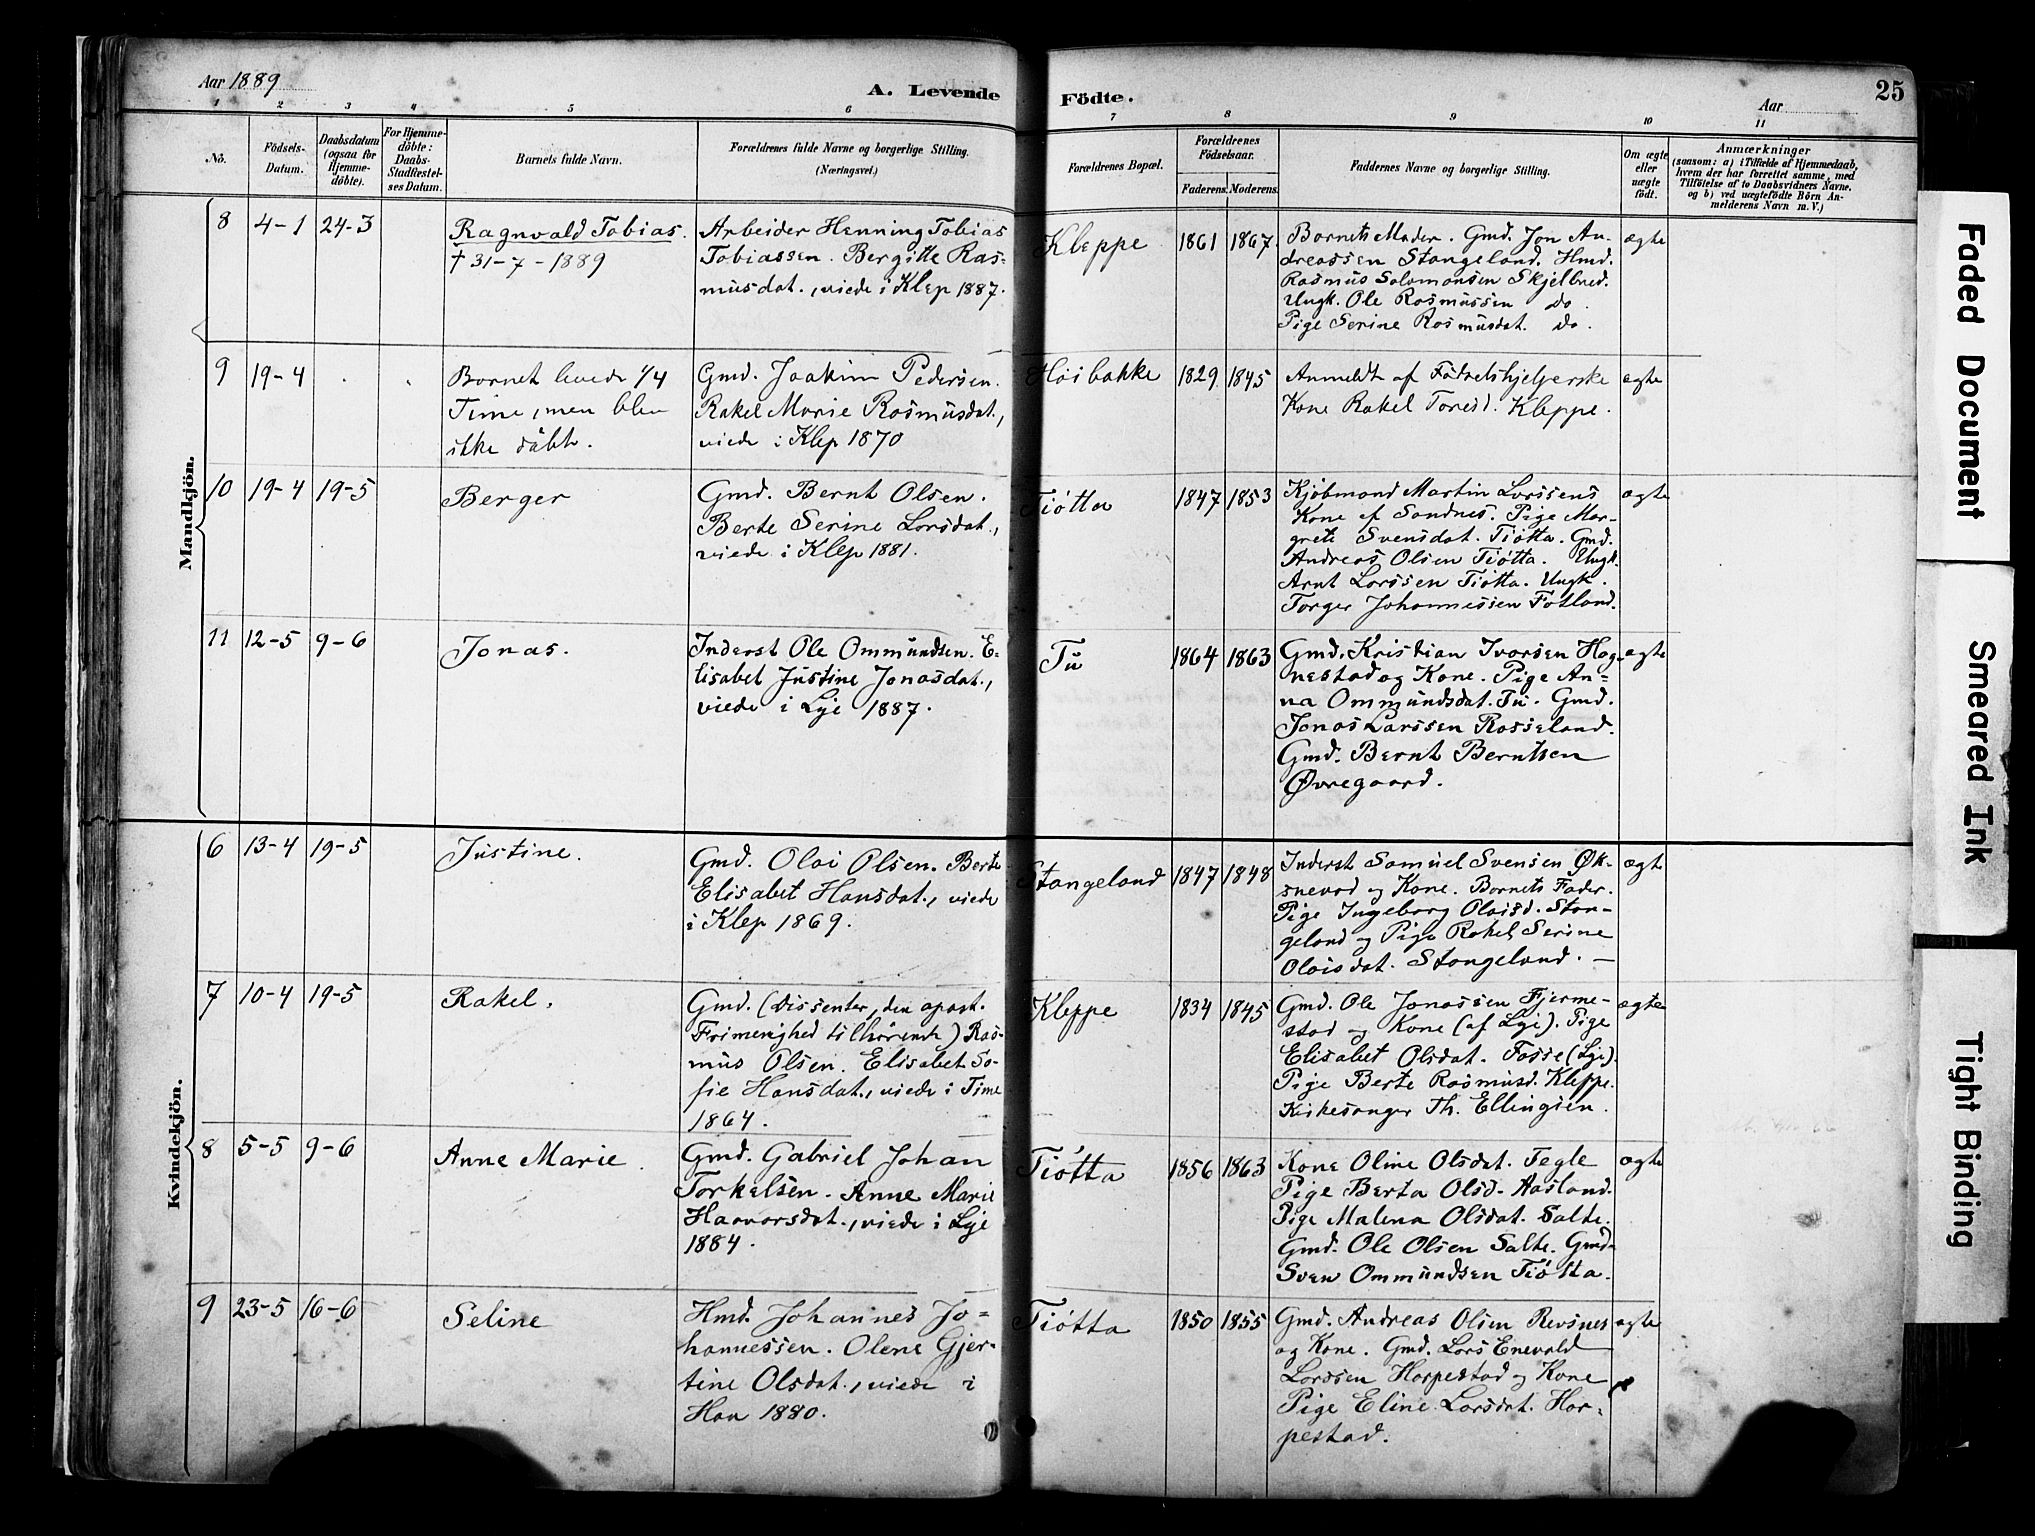 Aar 1889
A. Levende Födte.
Aar
25
1 2 3 4 5 6 7 8 9 10 11
No.
Födsels-
Datum.
Daabsdatum
(ogsaa for
Hjemme-
döbte).
For Hjemme-
döbte:
Daabs-
Stadfæstel-
ses Datum.
Barnets fulde Navn.
Forældrenes fulde Navne og borgerlige Stilling.
(Næringsvei.)
Forældrenes Bopæl.
Forældrenes
Födselsaar.
Faderens. Moderens.
Faddernes Navne og borgerlige Stilling.
Om ægte
eller
uægte
födt.
Anmærkninger
(saasom: a) i Tilfælde af Hjemmedaab,
hvem der har forrettet samme, med
Tilföielse af to Daabsvidners Navne,
og b) ved uægtefödte Börn An-
melderens Navn m. V.)
Mandkjön.
8 4-1 24-3
Ragnvald Tobias.
† 31-7-1889
Arbeider Henning Tobias
Tobiassen. Bergitte Ras=
musdat., viede i Klep 1887.
Kleppe
1861 1867
Barnets Moder. Gmd. Jon An-
dreassen Stangeland. Hmd.
Rasmus Salomonsen Skjelbred.
Ungk. Ole Rasmussen do.
Pige Serine Rasmusdat. do.
ægte
9 19-4
Barnet levede 1/4
Time, men blev
ikke døbt.
Gmd. Joakim Pedersen.
Rakel Marie Rasmusdat.,
viede i Klep 1870
Høibakke
1829 1845
Anmeldt af Fødselshjelperske
Kone Rakel Toresd. Kleppe.
ægte
10 19-4 19-5
Berger
Gmd. Bernt Olsen.
Berte Serine Larsdat.,
viede i Klep 1881.
Tjøtta
1847 1853
Kjøbmand Martin Larssens
Kone af Sandnes. Pige Mar-
grete Svensdat. Tjøtta. Gmd.
Andreas Olsen Tjøtta. Ungk.
Arnt Larssen Tjøtta. Ungk.
Torger Johannessen Fotland.
ægte
11 12-5 9-6
Jonas.
Inderst Ole Ommundsen. E-
lisabet Justine Jonasdat.,
viede i Lye 1887.
Tu
1864 1863
Gmd. Kristian Ivarsen Hog-
nestad og Kone. Pige An-
na Ommundsdat. Tu. Gmd.
Jonas Larssen Rosseland.
Gmd. Bernt Berntsen
Øvregaard.
ægte
Kvindekjön.
6 13-4 19-5
Justine.
Gmd. Olai Olsen. Berte
Elisabet Hansdat., viede
i Klep 1869.
Stangeland
1847 1848
Inderst Samuel Svensen Øk-
snevad og Kone. Barnets Fader.
Pige Ingeborg Olaisd. Stan-
geland og Pige Rakel Serine
Olaisdat. Stangeland. —
ægte
7 10-4 19-5
Rakel.
Gmd. (Dissenter, den apost.
Frimenighed tilhørende) Ras-
mus Olsen. Elisabet So-
fie Hansdat., viede i Time
1864.
Kleppe
1834 1845
Gmd. Ole Jonassen Fjerme-
stad og Kone (af Lye). Pige
Elisabet Olsdat. Fosse (Lye).
Pige Berte Rasmusd. Kleppe.
Kirkesanger Th. Ellingsen.
ægte
8 5-5 9-6
Anne Marie.
Gmd. Gabriel Johan
Torkelsen. Anne Marie
Haavorsdat., viede i Lye
1884.
Tjøtta
1856 1863
Kone Oline Olsdat. Tegle
Pige Berta Olsd. Aasland.
Pige Malena Olsdat. Salte.
Gmd. Ole Olsen Salte. Gmd.
Sven Ommundsen Tjøtta.
ægte
9 23-5 16-6
Seline
Hmd. Johannes Jo=
hannessen. Olene Gjer-
tine Olsdat., viede i
Haa 1880.
Tjøtta
1850 1855
Gmd. Andreas Olsen Revsnes
og Kone. Gmd. Lars Enevald
Larssen Horpestad og Kone
Pige Eline Larsdat. Hor-
pestad.
ægte
Faded Document
Smeared Ink
Tight Binding